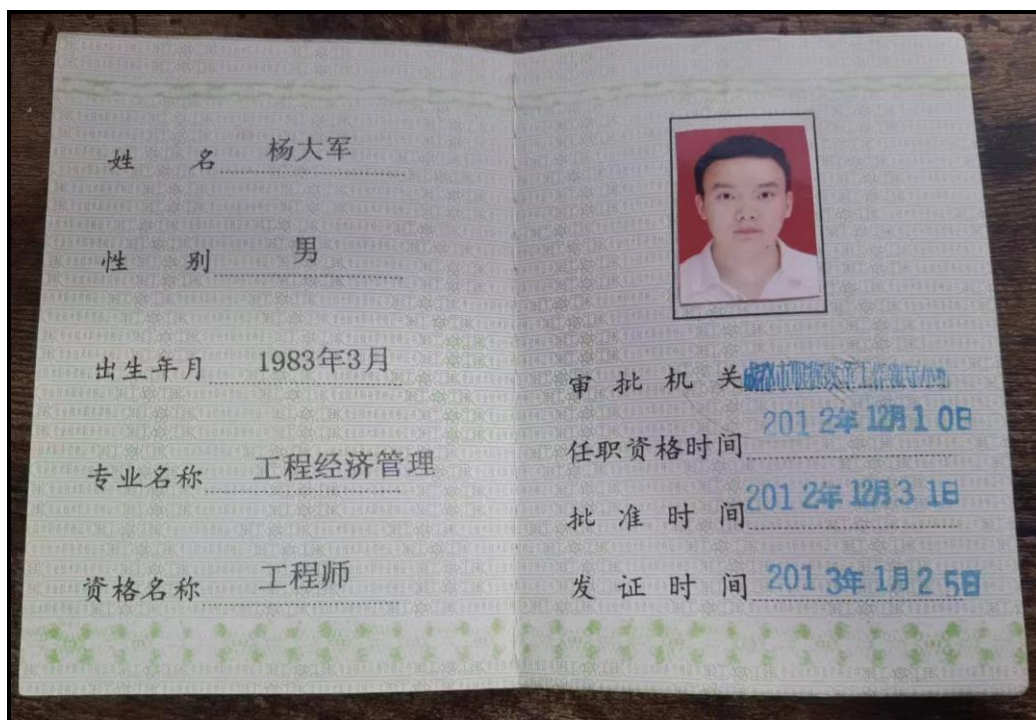 姓 名 杨大军
性 别 男
出生年月 1983年3月
专业名称 工程经济管理
资格名称 工程师
审 批 机 关
任职资格时间 2012年12月10日
批 准 时 间 2012年12月31日
发 证 时 间 2013年1月25日